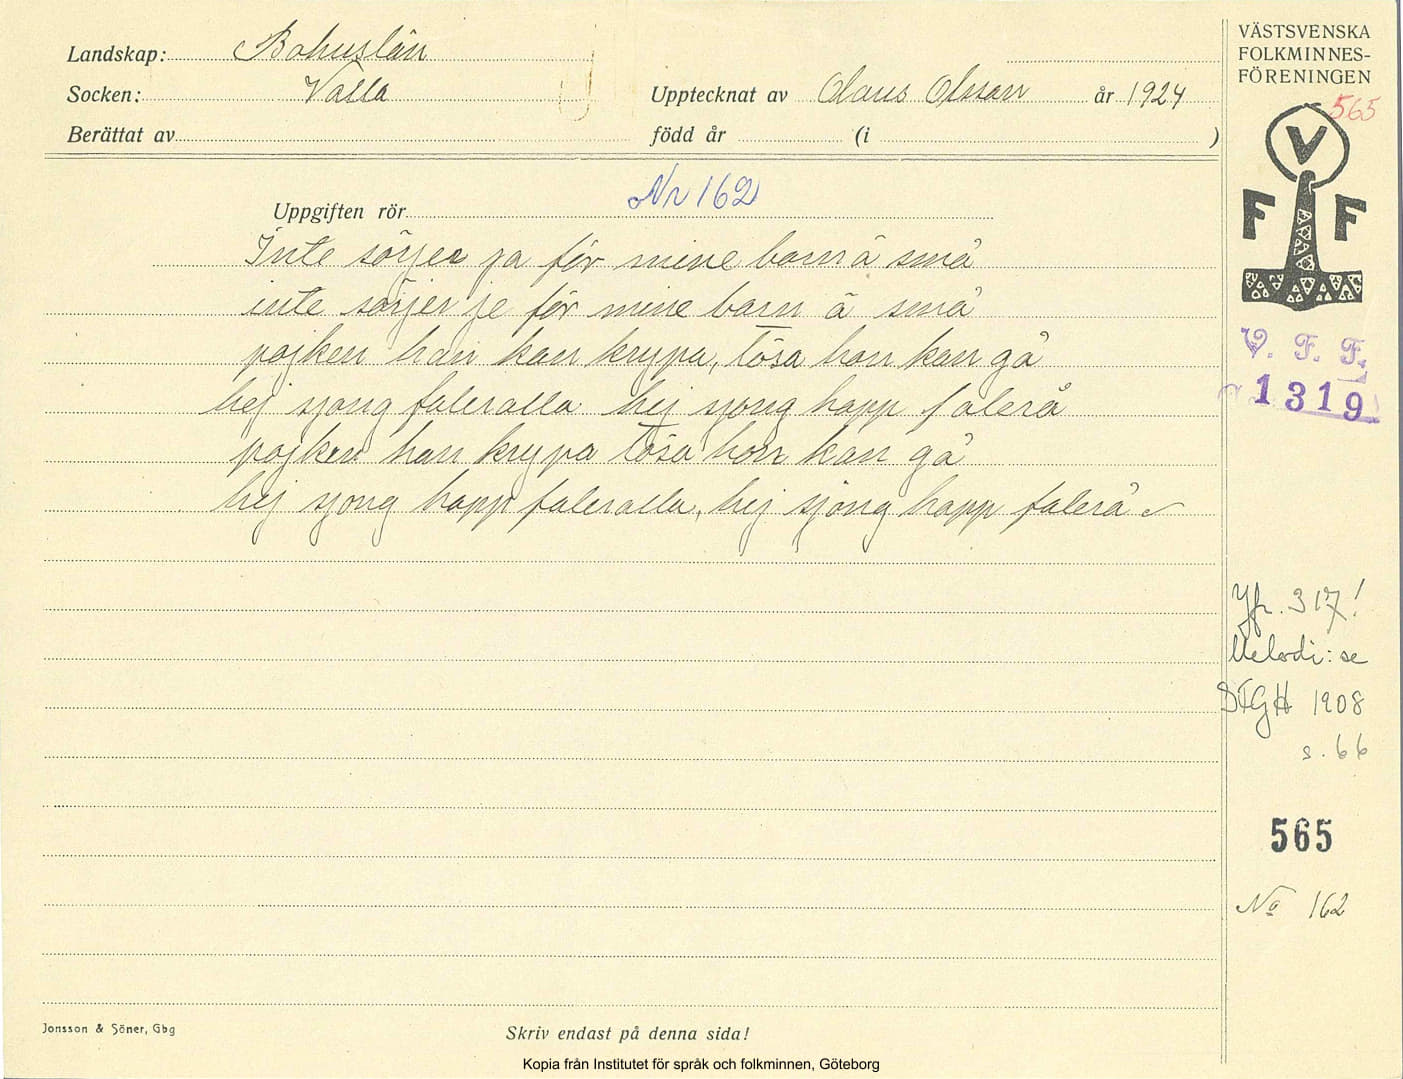 Landskap: Bohuslän
Socken: Valla
Upptecknat av Olaus Olsson år 1924
Berättat av
född år (i )
VÄSTSVENSKA
FOLKMINNES-
FÖRENINGEN
565
V
F F
V. F. F.
1319
Uppgiften rör Nr 162
Inte sörjer ja för mine barn å små
inte sörjer je för mine barn å små
pojken han kan krypa, tösa hon kan gå
hej sjong faleralla hej sjong happ falerå
pojken han krypa tösa hon kan gå
hej sjong happ faleralla, hej sjong happ falerå
Jfr. 317!
Melodi: se
SFGH 1908
s. 66
565
No 162
Jonsson & Söner, Gbg
Skriv endast på denna sida!
Kopia från Institutet för språk och folkminnen, Göteborg